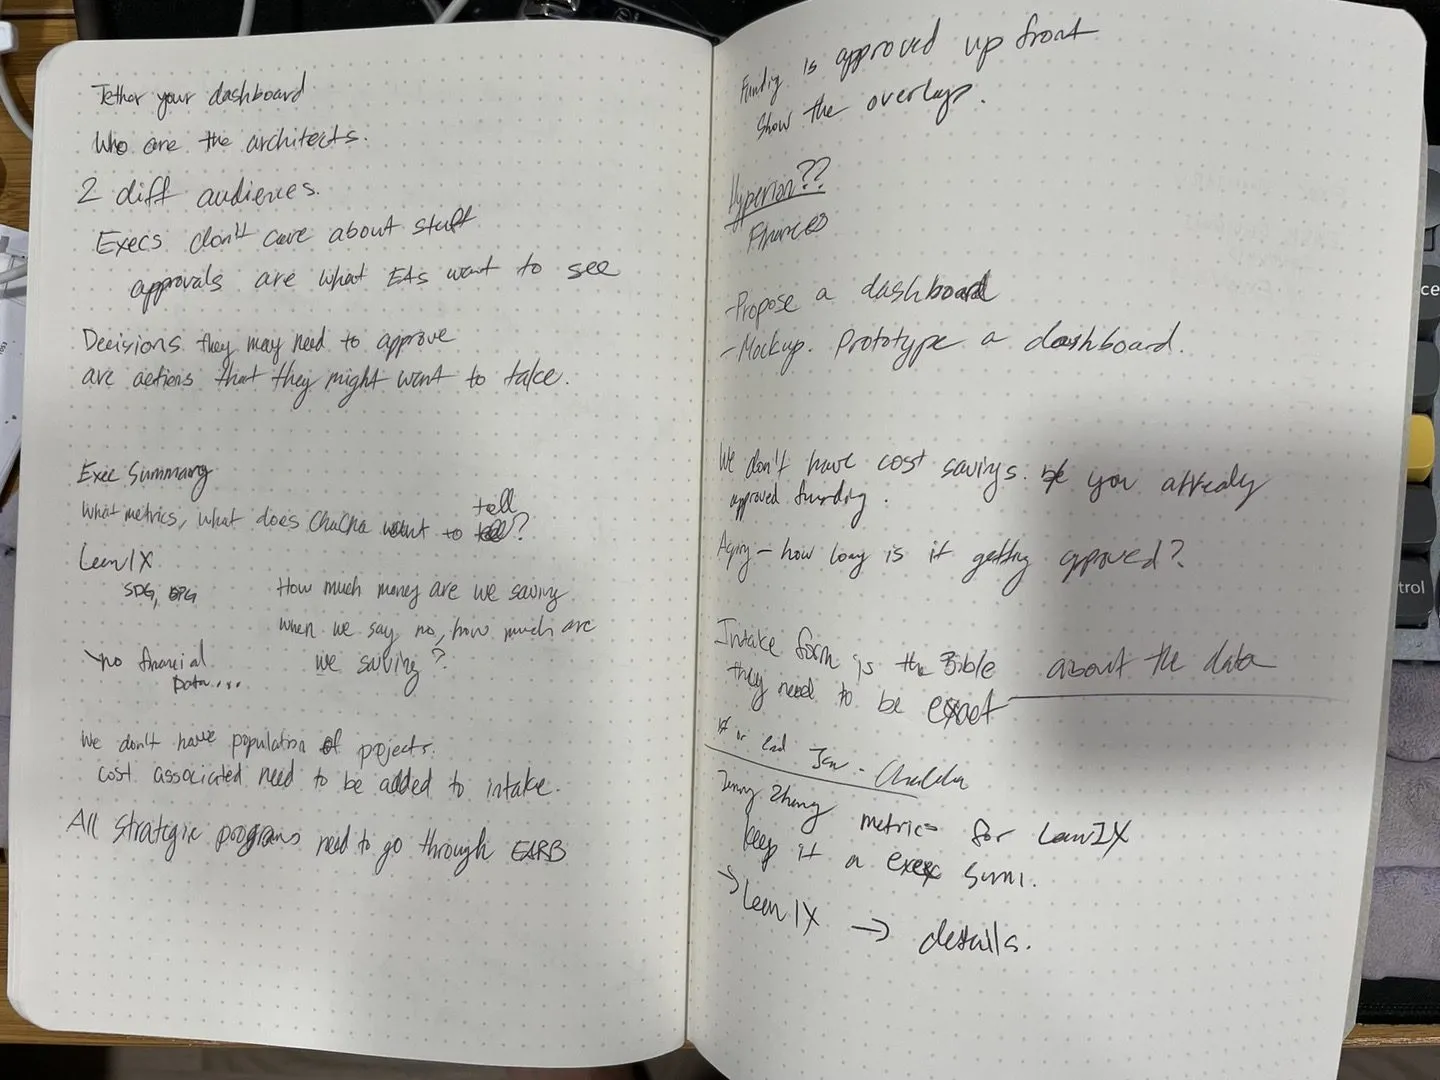 Tether your dashboard
Who are the architects.
2 diff audiences.
Execs don't care about stuff
approvals are what EAs want to see
Decisions they may need to approve
are actions that they might want to take.
Exec Summary
What metrics, what does ChaCha want to tell?
LeanIX
SDG,
How much money are we saving
when we say no, how much are
we saving?
no financial
Data...
We don't have population of projects.
cost associated need to be added to intake.
All strategic programs need to go through EARB
Funding is approved up front
Show the overlap.
Hyperion??
Finances
-Propose a dashboard
-Mockup. Prototype a dashboard.
We don't have cost savings. bc you already
approved funding.
Aging - how long is it getting approved?
Intake form is the Bible about the data
they need to be exact
1st or 2nd Jan -
Jenny Zhang metrics for LeanIX
keep it a exec sum.
→ LeanIX → details.
ce
trol